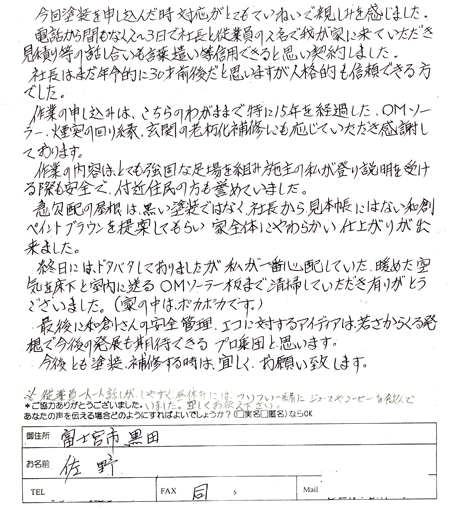 今回塗装を申し込んだ時対応がとてもていねいで親しみを感じました。
電話から間もなく2~3日で社長と従業員の2名で我が家に来ていただき
見積り等の話し合いも言葉遣い等信用できると思い契約しました。
社長はまだ年令的に30才前後だと思いますが人格的も信頼できる方
でした。
作業の申し込みは、こちらのわがままで特に15年を経過した、OMソー
ラー、煙突の回り縁、玄関の老朽化補修にも応じていただき感謝し
ております。
作業の内容は、とても強固な足場を組み施主の私が登り説明を受け
る際も安全で、付近住民の方も誉めていました。
急勾配の屋根は、黒い塗装ではなく、社長から見本帳にはない和創
ペイントブラウンを提案してもらい家全体にやわらかい仕上がりが出
来ました。
最終日には、ドタバタしておりましたが私が一番心配していた、暖めた空
気を床下と室内に送るOMソーラー板まで清掃していただき有りがとう
ございました。(家の中は、ポカポカです。)
最後に和創さんの安全管理、エコに対するアイディアは、若さからくる発
想で今後の発展も期待できるプロ集団と思います。
今後とも塗装、補修する時は、宜しくお願い致します。
※従業員一人一人話しが、しやすく昼休みには、
一緒にジュースやコーヒーを飲んで
*ご協力ありがとうございました。いました。
あなたの声を伝える場合どのようにすればよいでしょうか?(□実名□匿名)ならOK
御住所 富士宮市黒田
お名前 佐野
TEL FAX 同 Mail